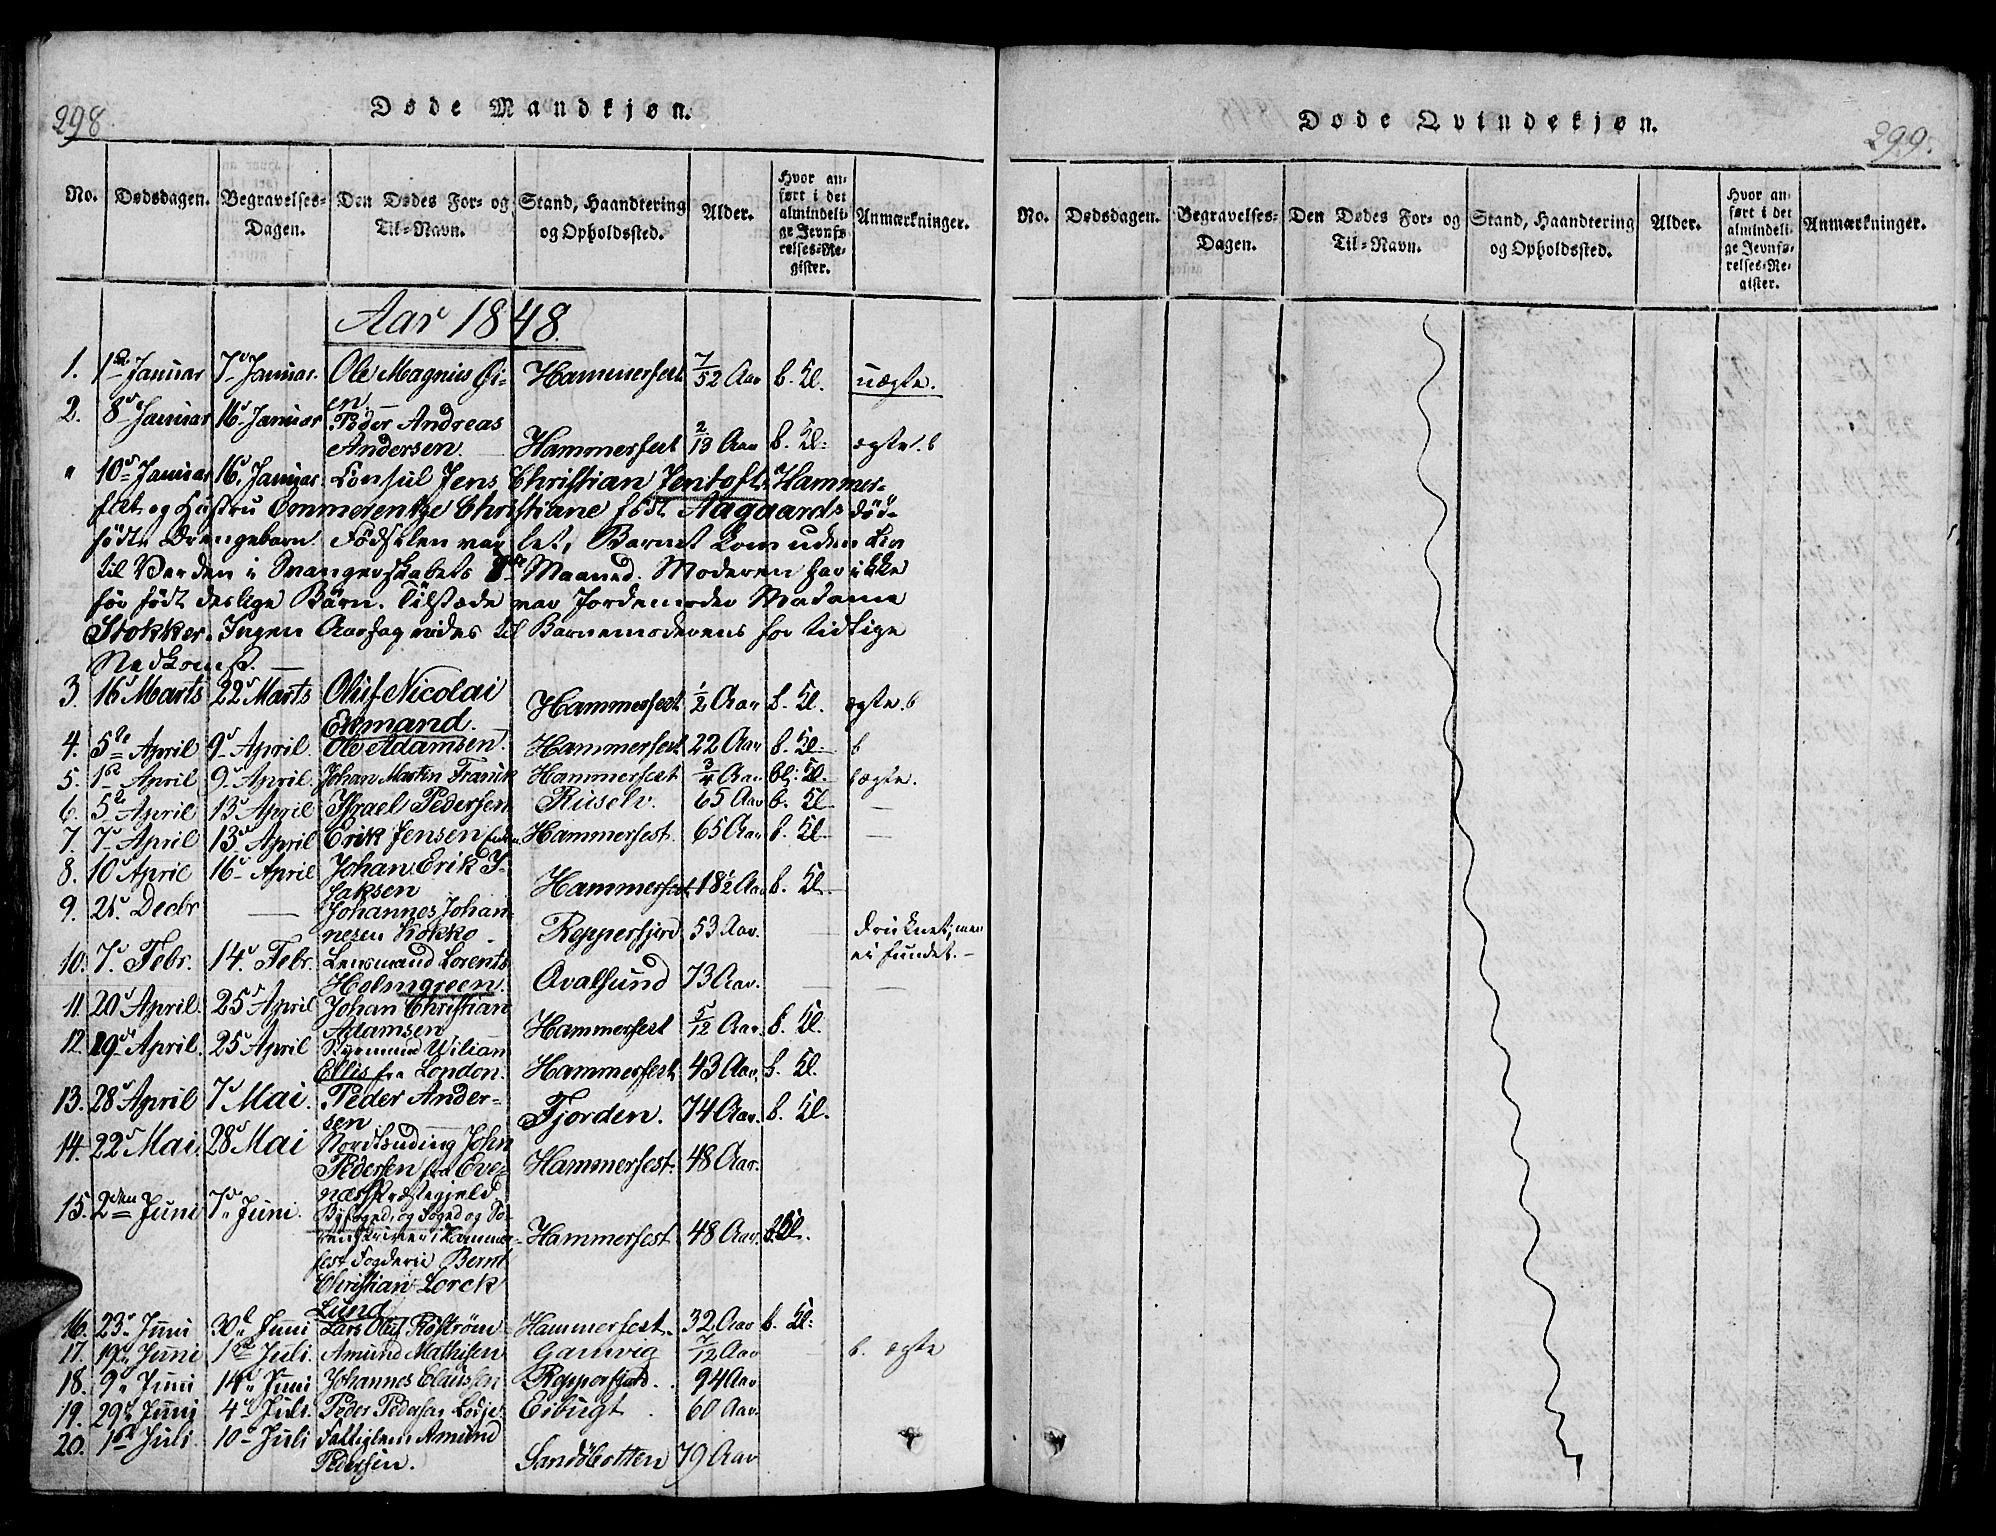 298.
Døde Mandkjøn.
No. Dødsdagen. Begravelses-Dagen. Den Dødes For- og Til-Navn. Stand, Haandtering og Opholdssted. Alder. Hvor anført i det almindelige Jevnførelses-Register. Anmærkninger.
Aar 1848.
1. 1ste Januar 7d Januar. Ole Magnus Øi- Hammerfest 7/52 Aar b. Kl. uægte.
en.
2. 8d Januar 16d Januar Peder Andreas
Andersen. Hammerfest 2/13 Aar b. Kl: ægte. b
" 10d Januar 16d Januar. Consul Jens Christian Jentoft Hammer-
fest og Hustru Emmerentze Christiane født Aagaards död-
födte Drengebarn. Fødselen var let, Barnet kom uden Liv
til Verden i Svangerskabets 8de Maaned. Moderen har ikke
før født deslige Børn. Tilstæde var Jordemoder Madame
Stokker. Ingen Aarsag vides til Barnemoderens for tidlige
Nedkomst.
3. 16d Marts 22d Marts Oluf Nicolai Hammerfest 1/2 Aar b. Kl. ægte. b
Ekmand.
4. 5te April 9d April. Ole Adamsen. Hammerfest 22 Aar b. Kl. b
5. 1ste April 9d April. Johan Martin Franck Hammerfest 3/4 Aar bl. Kl. b ægte.
6. 5te April 13d April Israel Pedersen Ruselv. 65 Aar b. Kl. —
7. 7d April 13d April Erik Jensen Hammerfest. 65 Aar b. Kl. —
8. 10d April 16d April Johan Erik I-
saksen Hammerfest 18 1/2 Aar b. Kl.
9. 21d Decbr — Johannes Johan-
nesen Kokko Repperfjord 53 Aar. — druknet; men
ei fundet. —
10. 7d Febr. 14d Febr. Lensmand Lorents
Holmgreen. Qvalsund 73 Aar. — —
11. 20d April. 25d April Johan Christian
Adamsen Hammerfest 5/12 Aar. b. Kl.
12. 19d April. 25d April Styrmand Wiliam
Ellis fra London. Hammerfest 43 Aar. b. Kl.
13. 28d April 7d Mai. Peder Ander-
sen Fjorden. 74 Aar. b. Kl.
14. 22d Mai. 28d Mai Nordlænding John
Pedersen fra Eve- Hammerfest. 48 Aar.
næs Præstegjeld.
15. 2den Juni 7d Juni. Byfoged, og Foged og So-
renskriver i Hammer- Hammerfest 48 Aar. b. Kl.
fest Fogderie Bernt
Christian Lorck
Lund
16. 23d Juni 30d Juni Lars Oluf Röström Hammerfest. 32 Aar b. Kl:
17. 19d Juni 1ste Juli. Amund Mathisen Gamvig 7/12 Aar b. ægte
18. 9d Juni 14d Juni Johannes Claussen Repperfjord. 94 Aar
19. 29d Juni 4d Juli. Peder Pedersen Eibugt 60 Aar.
20. 1ste Juli. 10d Juli Fattiglem Amund
Pedersen. Sandöbotten 79 Aar
299.
Døde Qvindekjøn.
No. Dødsdagen. Begravelses-Dagen. Den Dødes For- og Til-Navn. Stand, Haandtering og Opholdssted. Alder. Hvor anført i det almindelige Jevnførelses-Register. Anmærkninger.